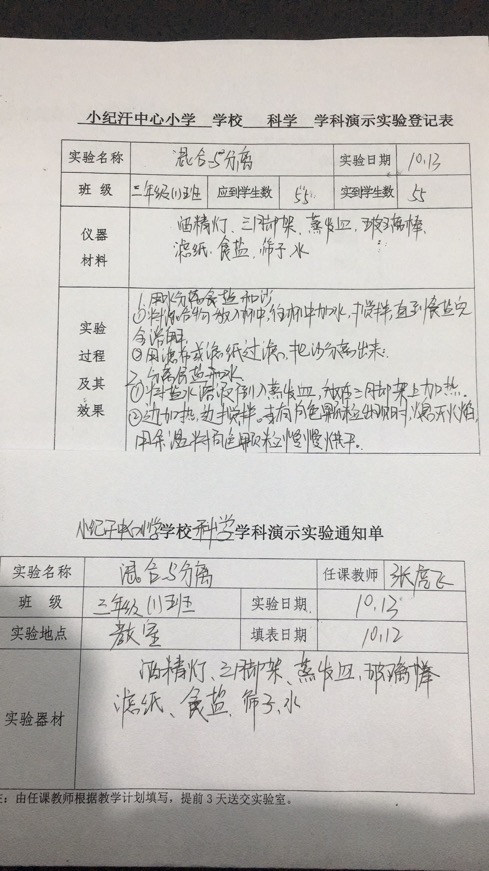 小纪汗中心小学 学校 科学 学科演示实验登记表
实验名称 混合与分离 实验日期 10.13
班 级 三年级(1)班 应到学生数 55 实到学生数 55
仪器材料 酒精灯、三脚架、蒸发皿、玻璃棒、
滤纸、食盐、筛子、水
实验过程及其效果
1.用水分离食盐和沙
①将混合物放入杯中,往杯中加水,搅拌,直到食盐完
全溶解
②用滤布或滤纸过滤,把沙分离出来.
2.分离食盐和水
①将盐水溶液倒入蒸发皿,放在三脚架上加热.
②边加热,边搅拌。待有白色颗粒出现时,熄灭火焰,
用余温将白色颗粒慢慢烘干.
小纪汗中心小学学校科学学科演示实验通知单
实验名称 混合与分离 任课教师
班 级 三年级(1)班 实验日期 10.13
实验地点 教室 填表日期 10.12
实验器材 酒精灯、三脚架、蒸发皿、玻璃棒
滤纸、食盐、筛子、水
注:由任课教师根据教学计划填写,提前3天送交实验室。